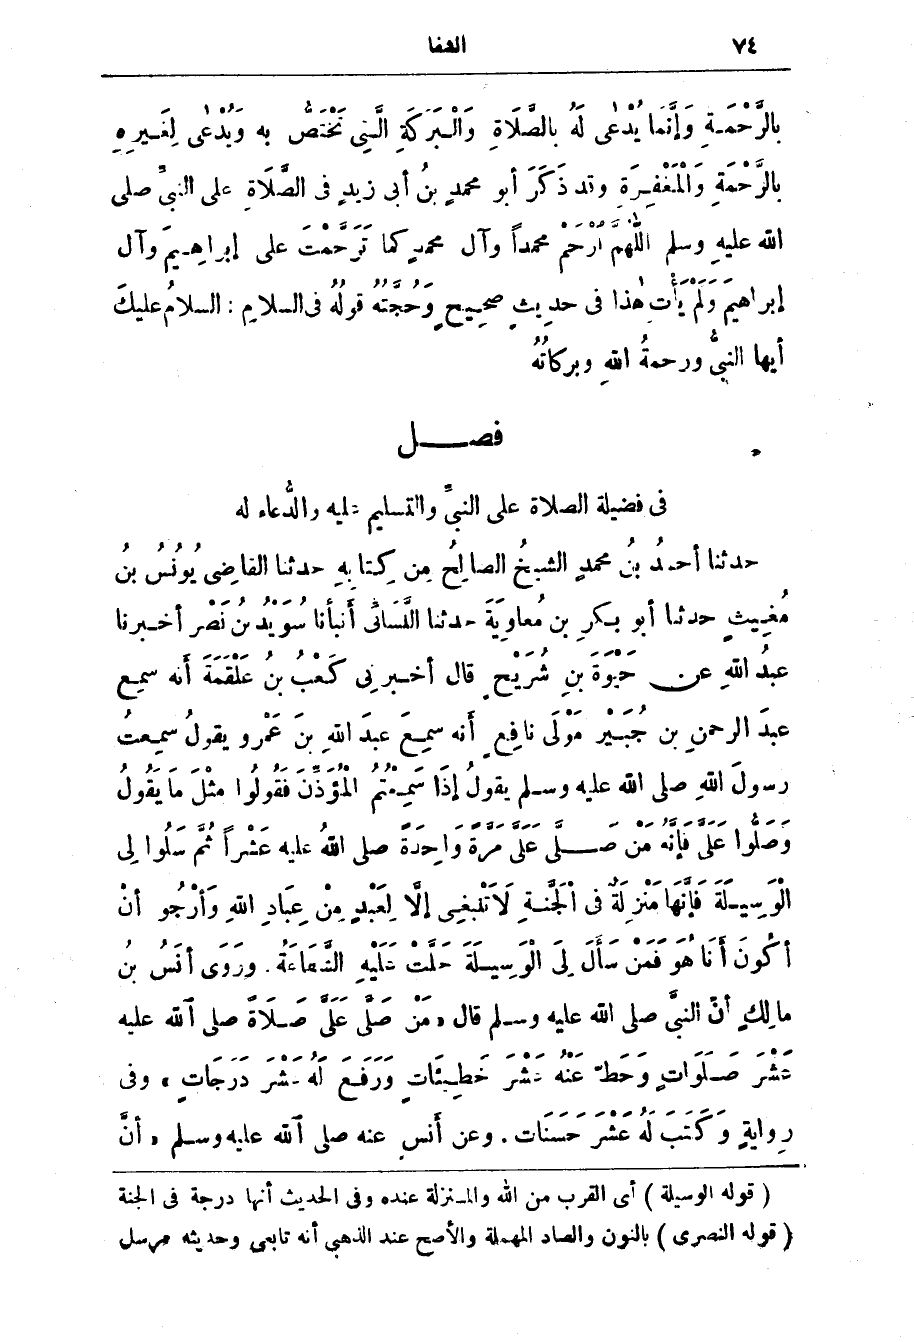 ٧٤ الشفا
بِالرَّحْمَةِ وَإِنَّمَا يُدْعَى لَهُ بِالصَّلَاةِ وَالْبَرَكَةِ الَّتِي تَخْتَصُّ بِهِ وَيُدْعَى لِغَيْرِهِ
بِالرَّحْمَةِ وَالْمَغْفِرَةِ وقد ذَكَرَ أبو محمدِ بنُ أبى زيدٍ فى الصَّلَاةِ على النبيِّ صلى
الله عليهِ وسلم اللَّهُمَّ ارْحَمْ محمداً وآل محمدٍ كما تَرَحَّمْتَ على إبراهِيمَ وآل
إبراهيمَ وَلَمْ يَأْتِ هٰذا فى حديثٍ صحِيحٍ وَحُجَّتُهُ قولُهُ فى السلامِ : السلامُ عليكَ
أيها النبيُّ ورحمةُ اللهِ وبركاتُهُ
فصــل
فى فضيلة الصلاة على النبيِّ والتسليم عليه والدُّعاء له
حدثنا أحمدُ بنُ محمدٍ الشيخُ الصالِحُ مِن كِتابِهِ حدثنا القاضى يُونُسُ بنُ
مُغِيثٍ حدثنا أبو بكرِ بنِ مُعاوِيَةَ حدثنا النَّسَائىُّ أَنبأنا سُوَيْدُ بنُ نَصْرٍ أخبرنا
عبدُ اللهِ عن حَيْوَةَ بنِ شُرَيْحٍ قال أخبرنى كَعْبُ بنُ عَلْقَمَةَ أنه سمِع
عبدَ الرحمنِ بن جُبَيْرٍ مَوْلَى نافِعٍ أنه سَمِعَ عبدَ اللهِ بنَ عَمْرٍو يقولُ سمِعتُ
رسولَ اللهِ صلى الله عليه وسلم يقولُ إذَا سَمِعْتُمُ الْمُؤَذِّنَ فَقُولُوا مِثْلَ مَا يَقُولُ
وَصَلُّوا عَلَيَّ فَإِنَّهُ مَنْ صَلَّى عَلَيَّ مَرَّةً وَاحِدَةً صلى اللهُ عليه عَشْراً ثُمَّ سَلُوا لِى
الْوَسِيلَةَ فَإِنَّهَا مَنْزِلَةٌ فى الْجَنَّةِ لَا تَنْبَغِى إلَّا لِعَبْدٍ مِنْ عِبَادِ اللهِ وَأَرْجُو أنْ
أكُونَ أَنَا هُوَ فَمَنْ سَأَلَ لِىَ الْوَسِيلَةَ حَلَّتْ عَلَيْهِ الشَّفَاعَةُ. ورَوَى أنَسُ بن
مالِكٍ أنّ النبيَّ صلى الله عليه وسلم قال «مَنْ صَلَّى عَلَىَّ صَلَاةً صلى ٱلله عليه
عَشْرَ صَلَوَاتٍ وَحَطَّ عَنْهُ عَشْرَ خَطِيئَاتٍ وَرَفَعَ لَهُ عَشْرَ دَرَجَاتٍ» وفى
رِوايةٍ وَكَتَبَ لَهُ عَشْرَ حَسَنَات. وعن أَنَسٍ عنه صلى ٱلله عليه وسلم «أنَّ
( قوله الوسيلة ) أى القرب من الله والمنزلة عنده وفى الحديث أنها درجة فى الجنة
( قوله النصرى ) بالنون والصاد المهملة والأصح عند الذهبي أنه تابعي وحديثه مرسل